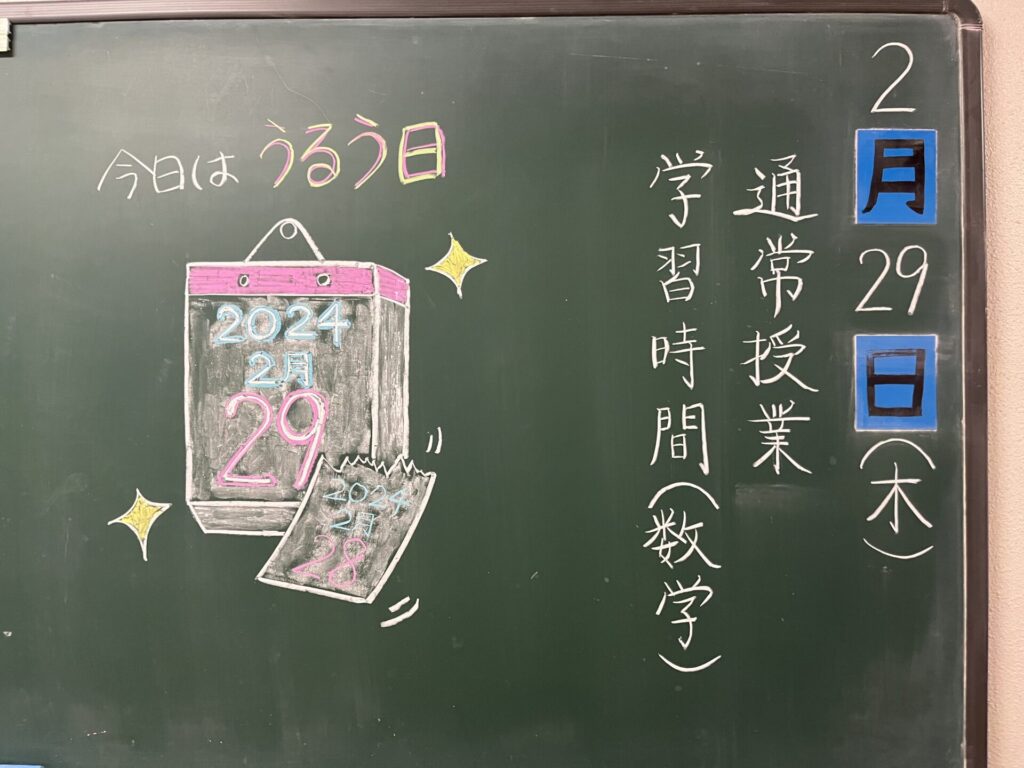 2月29日(木)
通常授業
学習時間(数学)
今日はうるう日
2024
2月
29
2024
2月
28